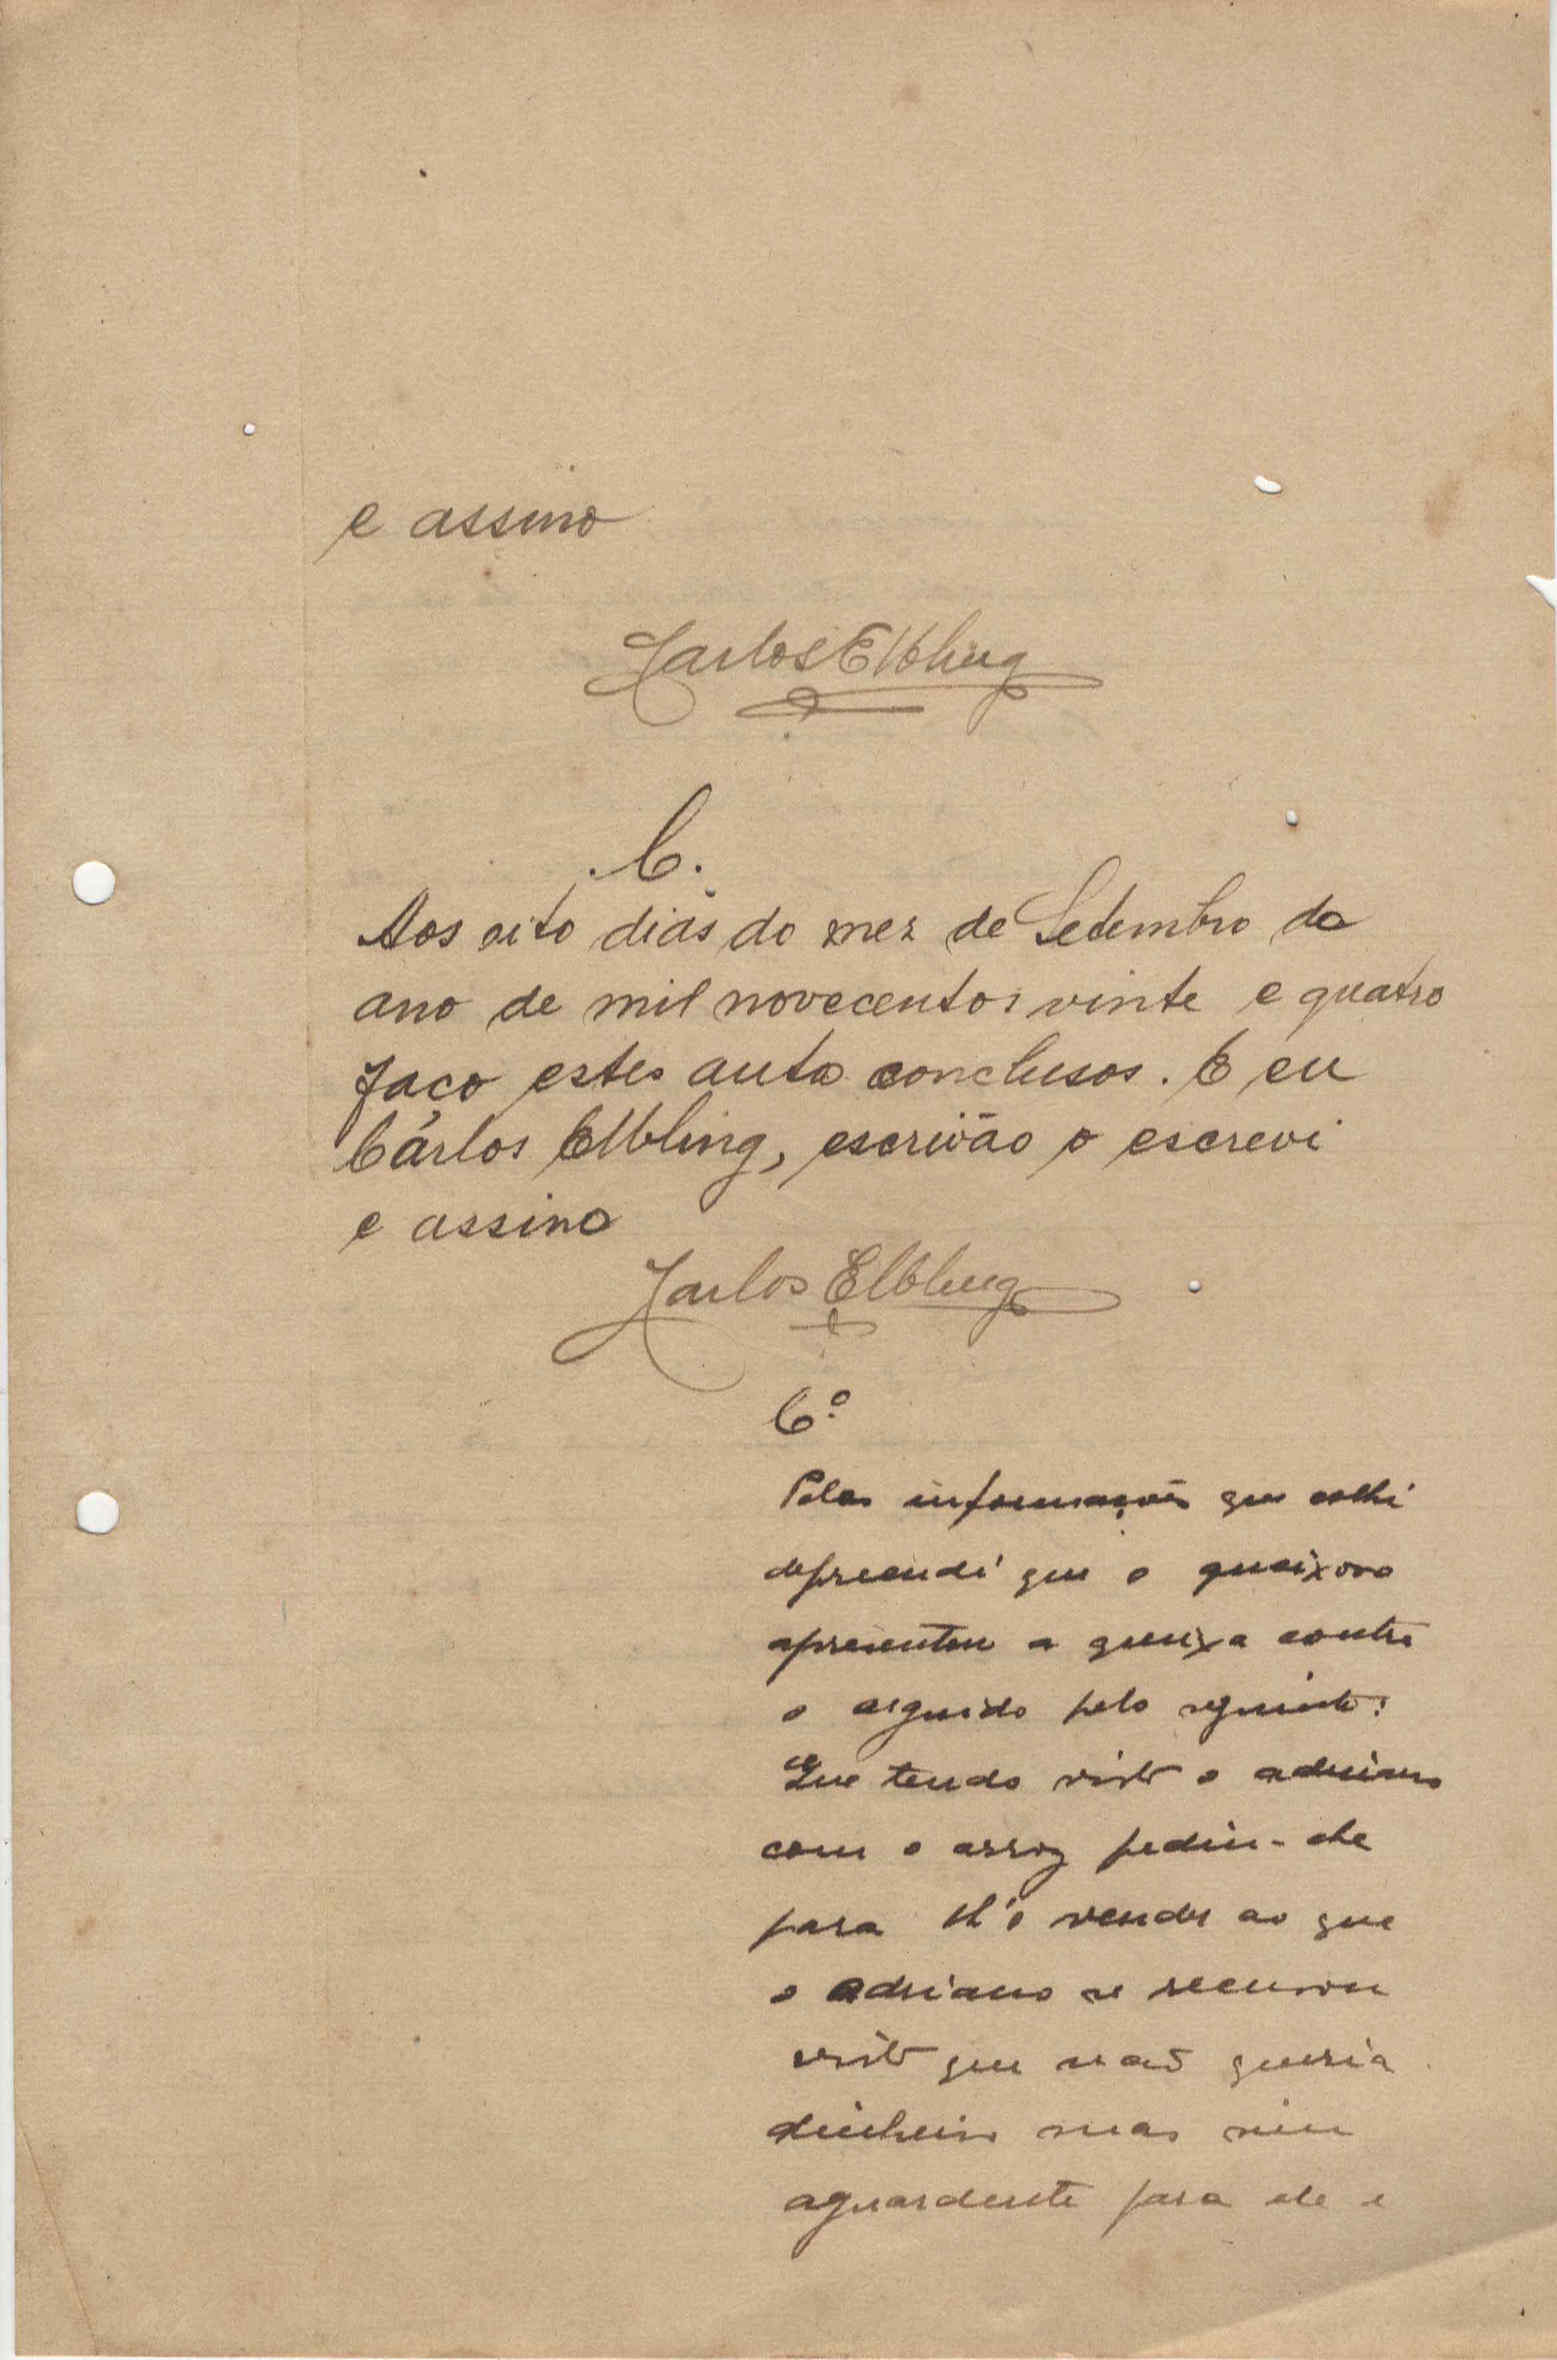 e assino
Carlos Elbling
C.
Aos oito dias do mez de Setembro do
ano de mil novecentos vinte e quatro
faço estes autos conclusos. E eu
Cárlos Elbling, escrivão o escrevi
e assino
Carlos Elbling
C.º
Pelas informações que colhi
depreendi que o queixoso
apresentou a queixa contra
o arguido pelo seguinte:
Que tendo visto o adriano
com o arroz pediu-lhe
para lh'o vender ao que
o adriano se recusou
visto que não queria
dinheiro mas sim
aguardente para ele e